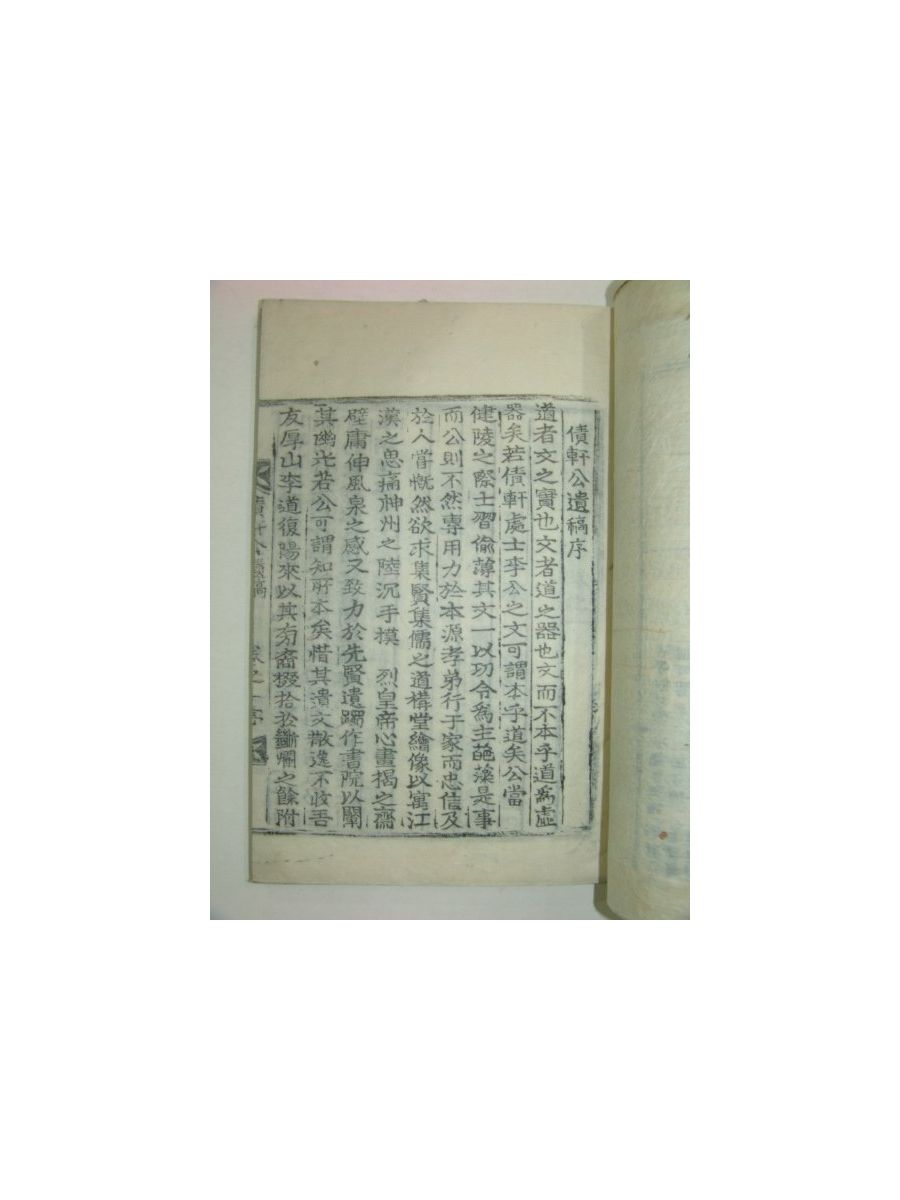 債軒公遺稿序
道者文之實也文者道之器也文而不本乎道爲虛
器矣若債軒處士李公之文可謂本乎道矣公當
健陵之際士習偷薄其文一以功令爲主葩藻是事
而公則不然專用力於本源孝弟行于家而忠信及
於人嘗慨然欲求集賢集儒之道構堂繪像以寓江
漢之思痛神州之陸沉手摸 烈皇帝心畫揭之齋
壁庸伸風泉之感又致力於先賢遺躅作書院以闡
其幽光若公可謂知所本矣惜其遺文散逸不收吾
友厚山李道復陽來以其旁裔掇拾於斷爛之餘附